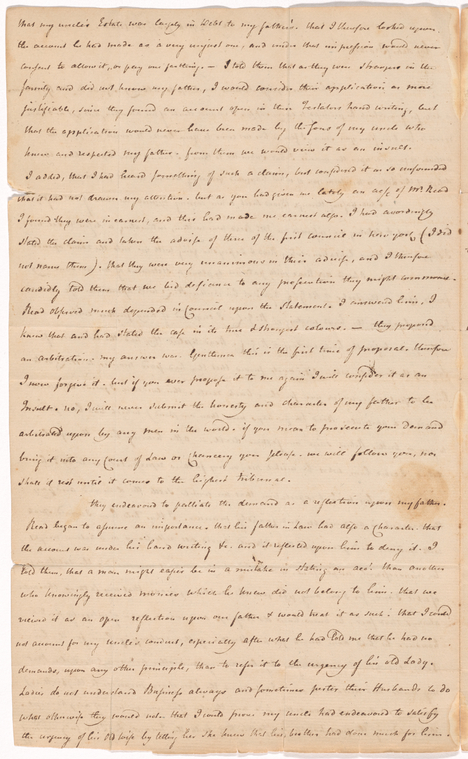 that my uncle's Estate was largely in Debt to my father's. that I therefore looked upon
the account he had made as a very unjust one, and under that impression would never
consent to allow it, or pay one farthing. — I told them that as they were strangers in the
family and did not know my father, I would consider their application as more
justifiable, since they found an account open in their Testators hand writing, but
that the application would never have been made by the Sons of my uncle who
knew and respected my father. from them we would view it as an insult.
I added, that I had heard something of such a claim, but considered it as so unfounded
that it had not drawn my attention. but as you had given me lately an acct. of Mr. Read
I found they were in earnest, and this had made me earnest also. I had accordingly
stated the claim and taken the advise of three of the first council in New York, (I did
not name them). that they were very unanimous in their advise, and I therefore
candidly told them that we bid defiance to any prosecution they might commence.
Read observed much depended in Council upon the Statement. I answered him, I
knew that and had stated the case in its true & strongest colours. — they proposed
an arbitration. my answer was. Gentlemen this is the first time of proposal. therefore
I must forgive it. but if you ever propose it to me again I will consider it as an
Insult. no, I will never submit the honesty and character of my father to be
arbitrated upon by any men in the world. if you mean to prosecute your demand
bring it into any Court of Law or Chancery you please. we will follow you, nor
shall it rest until it comes to the highest tribunal.
they endeavoured to palliate the demand as a reflection upon my father.
Read began to assume an importance. that his father in Law had also a Character. that
the account was under his hand writing &c. and it reflected upon him to deny it. I
told them, that a man might easier be in a mistake in stating an acct. than another
who knowingly received monies which he knew did not belong to him. that we
viewed it as an open reflection upon our father & would treat it as such. that I could
not account for my uncle's conduct, especially after what he had told me that he had no
demands, upon any other principle, than to refer it to the urgency of his old Lady.
Ladies do not understand Business always and sometimes pester their Husbands to do
what otherwise they would not. that I could prove my uncle had endeavoured to satisfy
the urgency of his old wife by telling her she knew that his brother had done much for him.